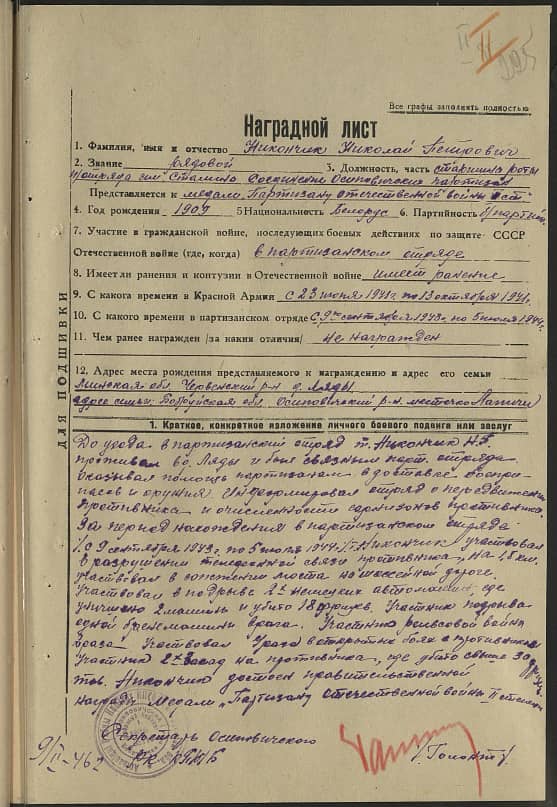 II
II
225
Все графы заполнять полностью
Наградной лист
1. Фамилия, имя и отчество Никончик Николай Петрович
2. Звание рядовой 3. Должность, часть старшина роты
п/отряда им. Сталина Соединения Осиповичских партизан
Представляется к медали „Партизану отечественной войны II ст"
4. Год рождения 1909 5 Национальность Белорус 6. Партийность б/партийн.
7. Участие в гражданской войне, последующих боевых действиях по защите СССР
Отечественной войне (где, когда) в партизанском отряде
8. Имеет ли ранения и контузии в Отечественной войне имеет ранение
9. С какого времени в Красной Армии с 23 июня 1941 г. по 13 октября 1941 г.
10. С какого времени в партизанском отряде с 9 сентября 1943 г. по 5 июля 1944 г.
11. Чем ранее награжден /за какия отличия/ не награжден
12. Адрес места рождения представляемого к награждению и адрес его семьи
Минская обл. Червенский р-н д. Ляды.
адрес семьи: Бобруйская обл. Осиповичский р-н. местечко Лапичи
ДЛЯ ПОДШИВКИ
1. Краткое, конкретное изложение личного боевого подвига или заслуг
До ухода в партизанский отряд т. Никончик Н.П.
проживал в д. Ляды и был связным парт. отряда.
Оказывал помощь партизанам в доставке боепри-
пасов и оружия. Информировал отряд о передвижении
противника и численности гарнизонов противника.
За период нахождения в партизанском отряде
с 9 сентября 1943 г. по 5 июля 1944 г. т. Никончик участвовал
в разрушении телефонной связи противника, на 1,5 км.
Участвовал в сожжении моста на шоссейной дороге.
Участвовал в подрыве 2х немецких автомашин, где
уничтожено 2 машины и убито 18 фрицев. Участник подрыва
одной бронемашины врага. Участник рельсовой войны
врага. Участвовал в открытых боях с противником
Участник 2х засад на противника, где убито свыше 30
тов. Никончик достоен правительственной
награды Медали „Партизану отечественной войны II степени
Секретарь Осиповичского
РК КП/б/Б
9/II-46 г.